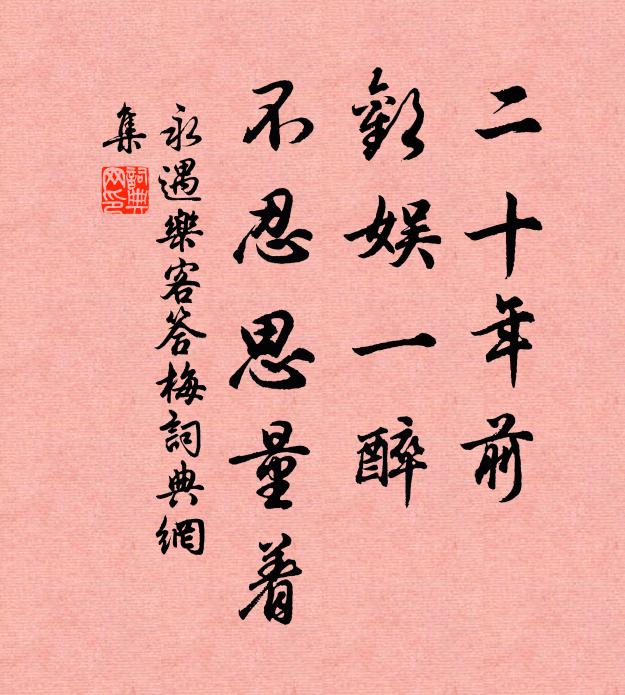 二十年前
歡娱一醉
不忍思量着
永遇樂客答梅詞典網
集
詞典
网印